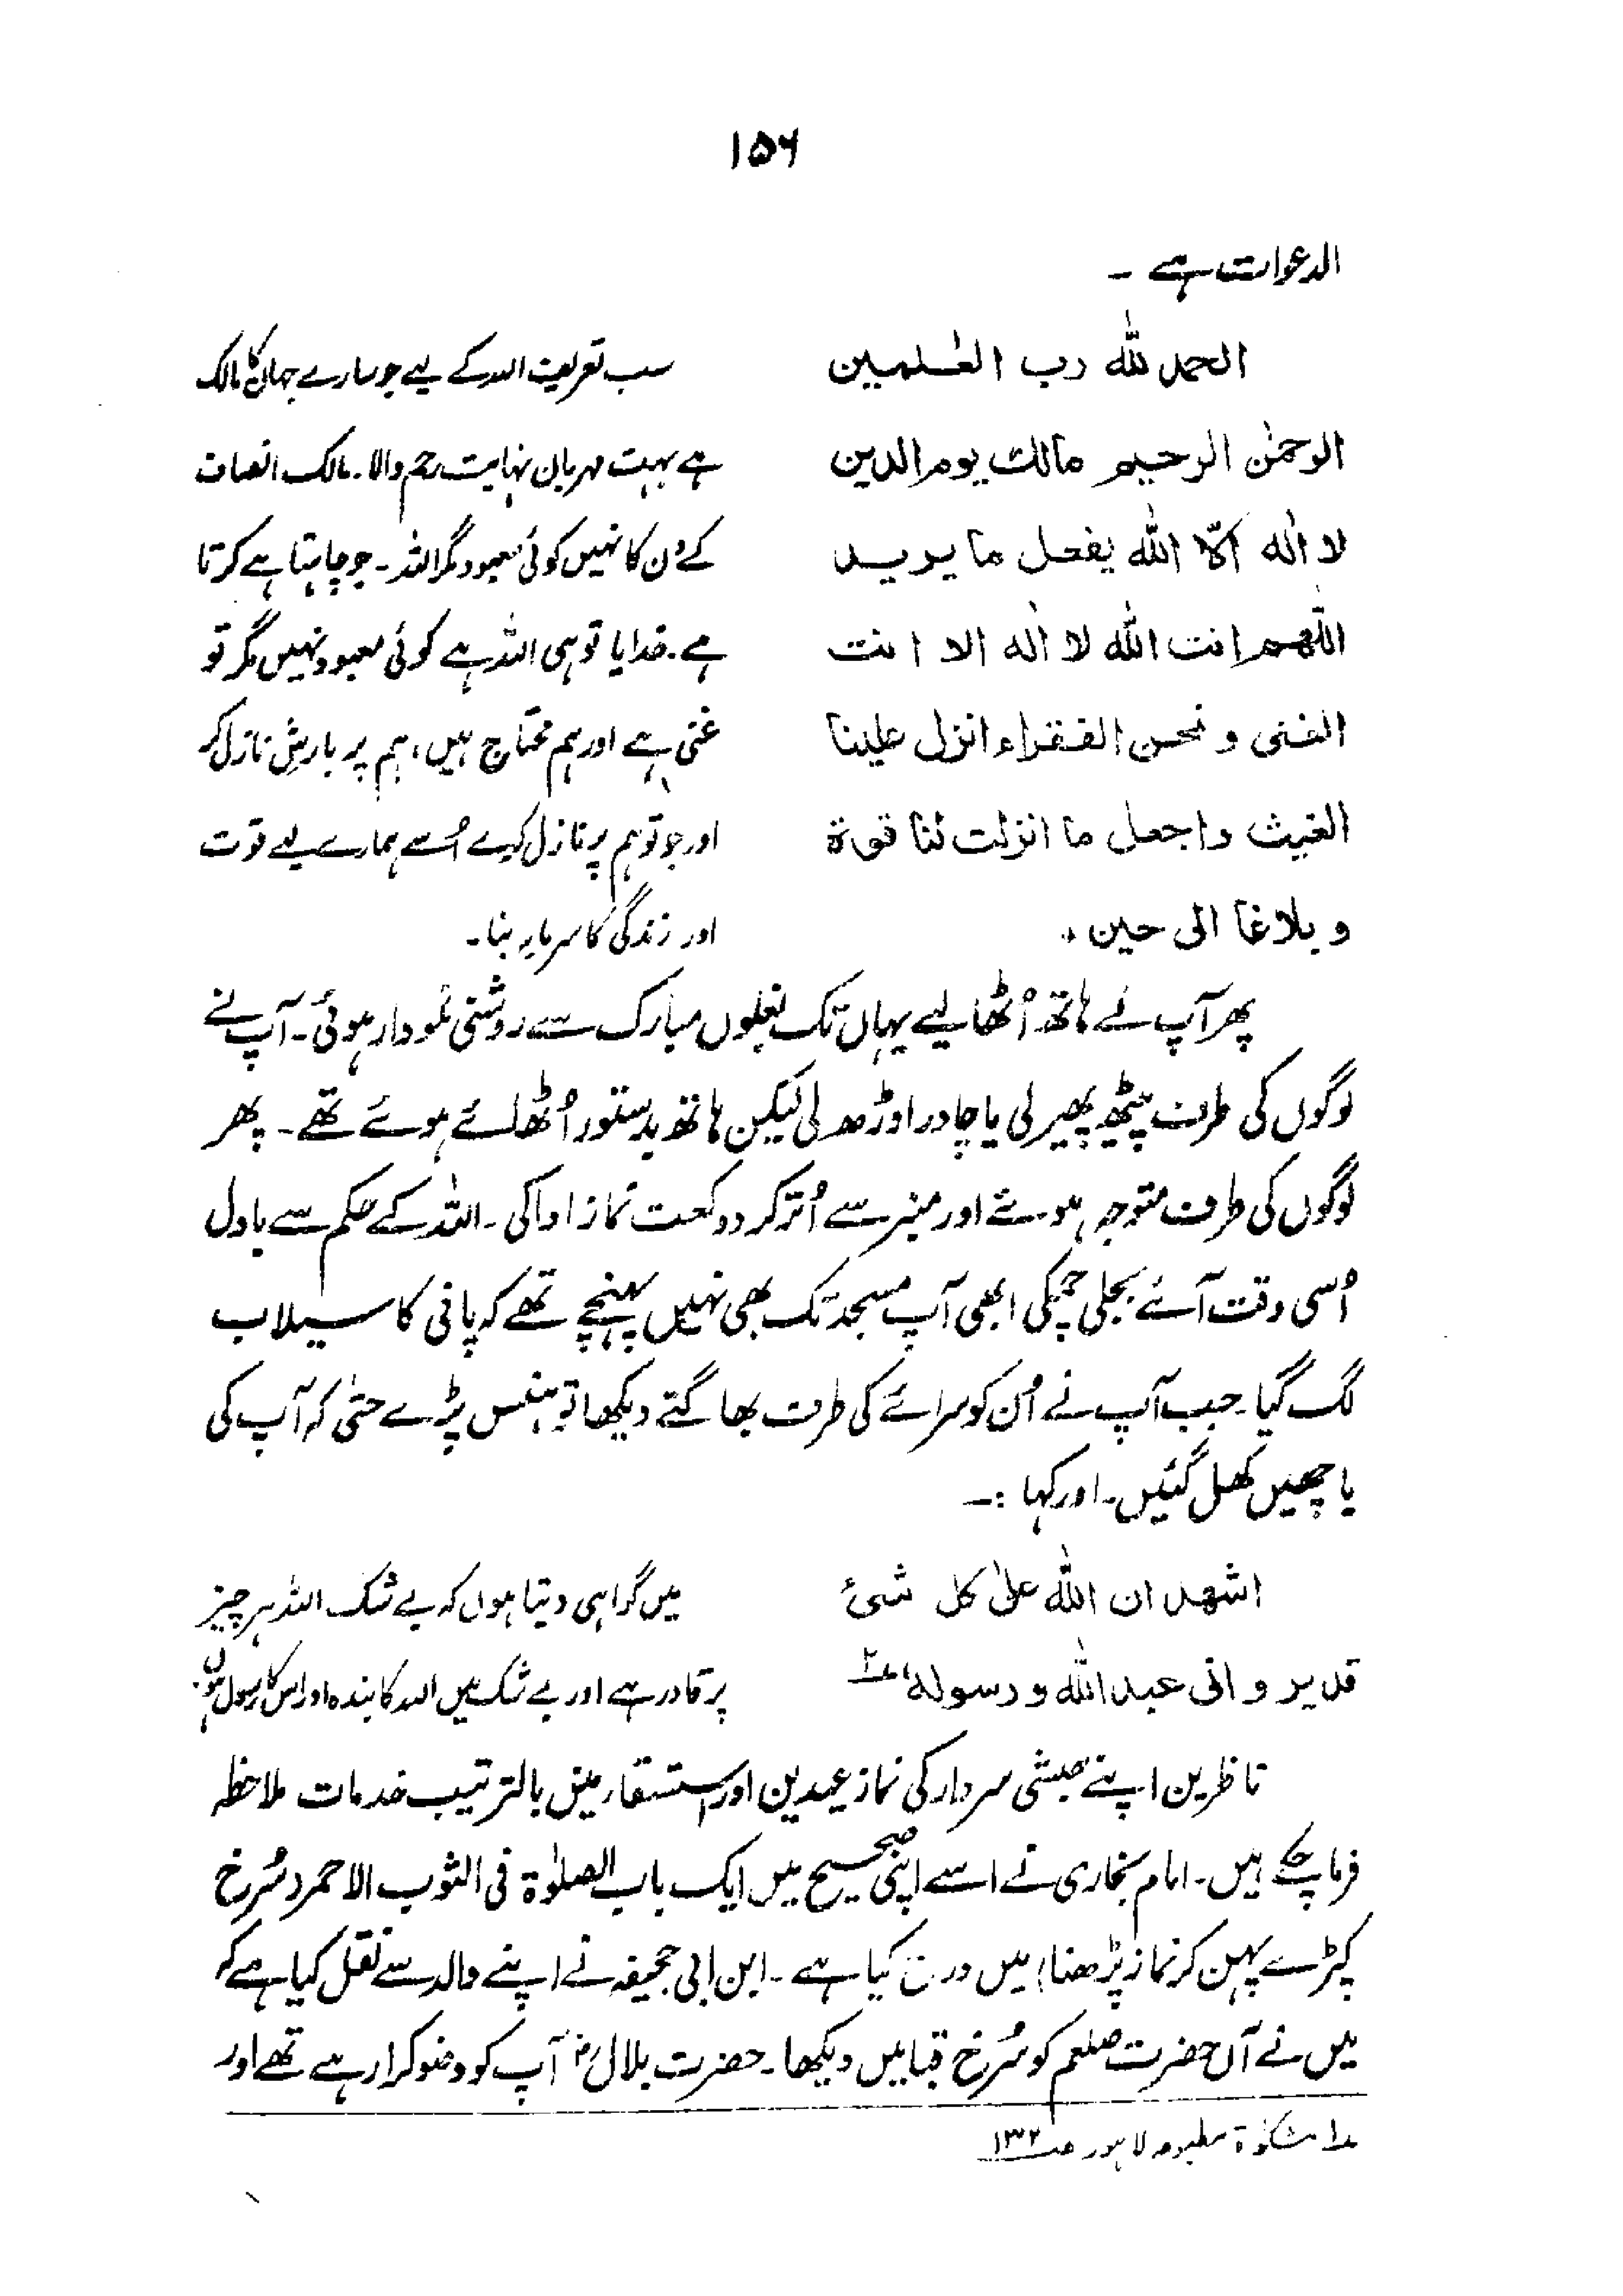 ۱۵۶
الدعوات ہے ۔
الحمد للّٰہ رب العٰلمین
سب تعریف اللہ کے لیے جو سارے جہان کا مالک
الرحمٰن الرحیم مالک یوم الدین
ہے بہت مہربان نہایت رحم والا۔ مالک انصاف
لا الٰہ الّا اللّٰہ یفعل ما یرید
کے دن کا نہیں کوئی معبود مگر اللہ۔ جو چاہتا ہے کرتا
اللّٰھم انت اللّٰہ لا الٰہ الا انت
ہے۔ خدایا تو ہی اللہ ہے کوئی معبود نہیں مگر تو
الغنی و نحن الفقراء انزل علینا
غنی ہے اور ہم محتاج ہیں، ہم پر بارش نازل کر
الغیث واجعل ما انزلت لنا قوۃ
اور جو تو ہم پر نازل کرے اُسے ہمارے لیے قوت
و بلاغا الی حین ۔
اور زندگی کا سرمایہ بنا۔
پھر آپ نے ہاتھ اُٹھا لیے یہاں تک بغلوں مبارک سے روشنی نمودار ہوئی۔ آپ نے
لوگوں کی طرف پیٹھ پھیر لی یا چادر اوڑھ لی لیکن ہاتھ بدستور اُٹھائے ہوئے تھے۔ پھر
لوگوں کی طرف متوجہ ہوئے اور منبر سے اُتر کر دو رکعت نماز ادا کی۔ اللہ کے حکم سے بادل
اُسی وقت آئے بجلی چمکی ابھی آپ مسجد تک بھی نہیں پہنچے تھے کہ پانی کا سیلاب
لگ گیا۔ جب آپ نے اُن کو سرائے کی طرف بھاگتے دیکھا تو ہنس پڑے حتیٰ کہ آپ کی
باچھیں کھل گئیں۔ اور کہا :۔
اشھد ان اللّٰہ علیٰ کل شئ
میں گواہی دیتا ہوں کہ بے شک اللہ ہر چیز
قدیر و انی عبد اللّٰہ و رسولہ
پر قادر ہے اور بے شک میں اللہ کا بندہ اور اس کا رسول ہوں۔
ناظرین اپنے حبشی سردار کی نماز عیدین اور استسقاء میں بالترتیب خدمات ملاحظہ
فرما چکے ہیں۔ امام بخاری نے اسے اپنی صحیح میں ایک باب الصلوٰۃ فی الثوب الاحمر (سُرخ
کپڑے پہن کر نماز پڑھنا) میں درج کیا ہے ۔ ابن ابی جحیفہ نے اپنے والد سے نقل کیا ہے کہ
میں نے آں حضرت صلعم کو سُرخ قبا میں دیکھا۔ حضرت بلال رض آپ کو وضو کرا رہے تھے اور
؎۱ مشکوٰۃ مطبوعہ لاہور ص ۱۳۲